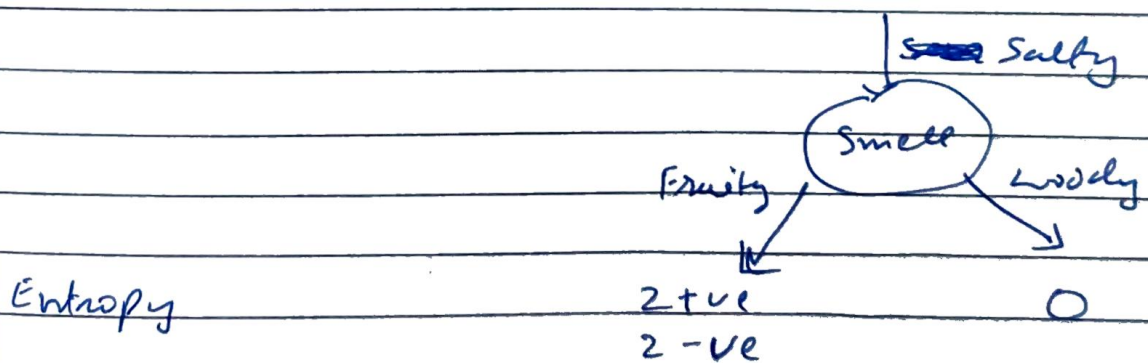 Salty
Smell
Fruity woody
Entropy 2 +ve O
2 -ve